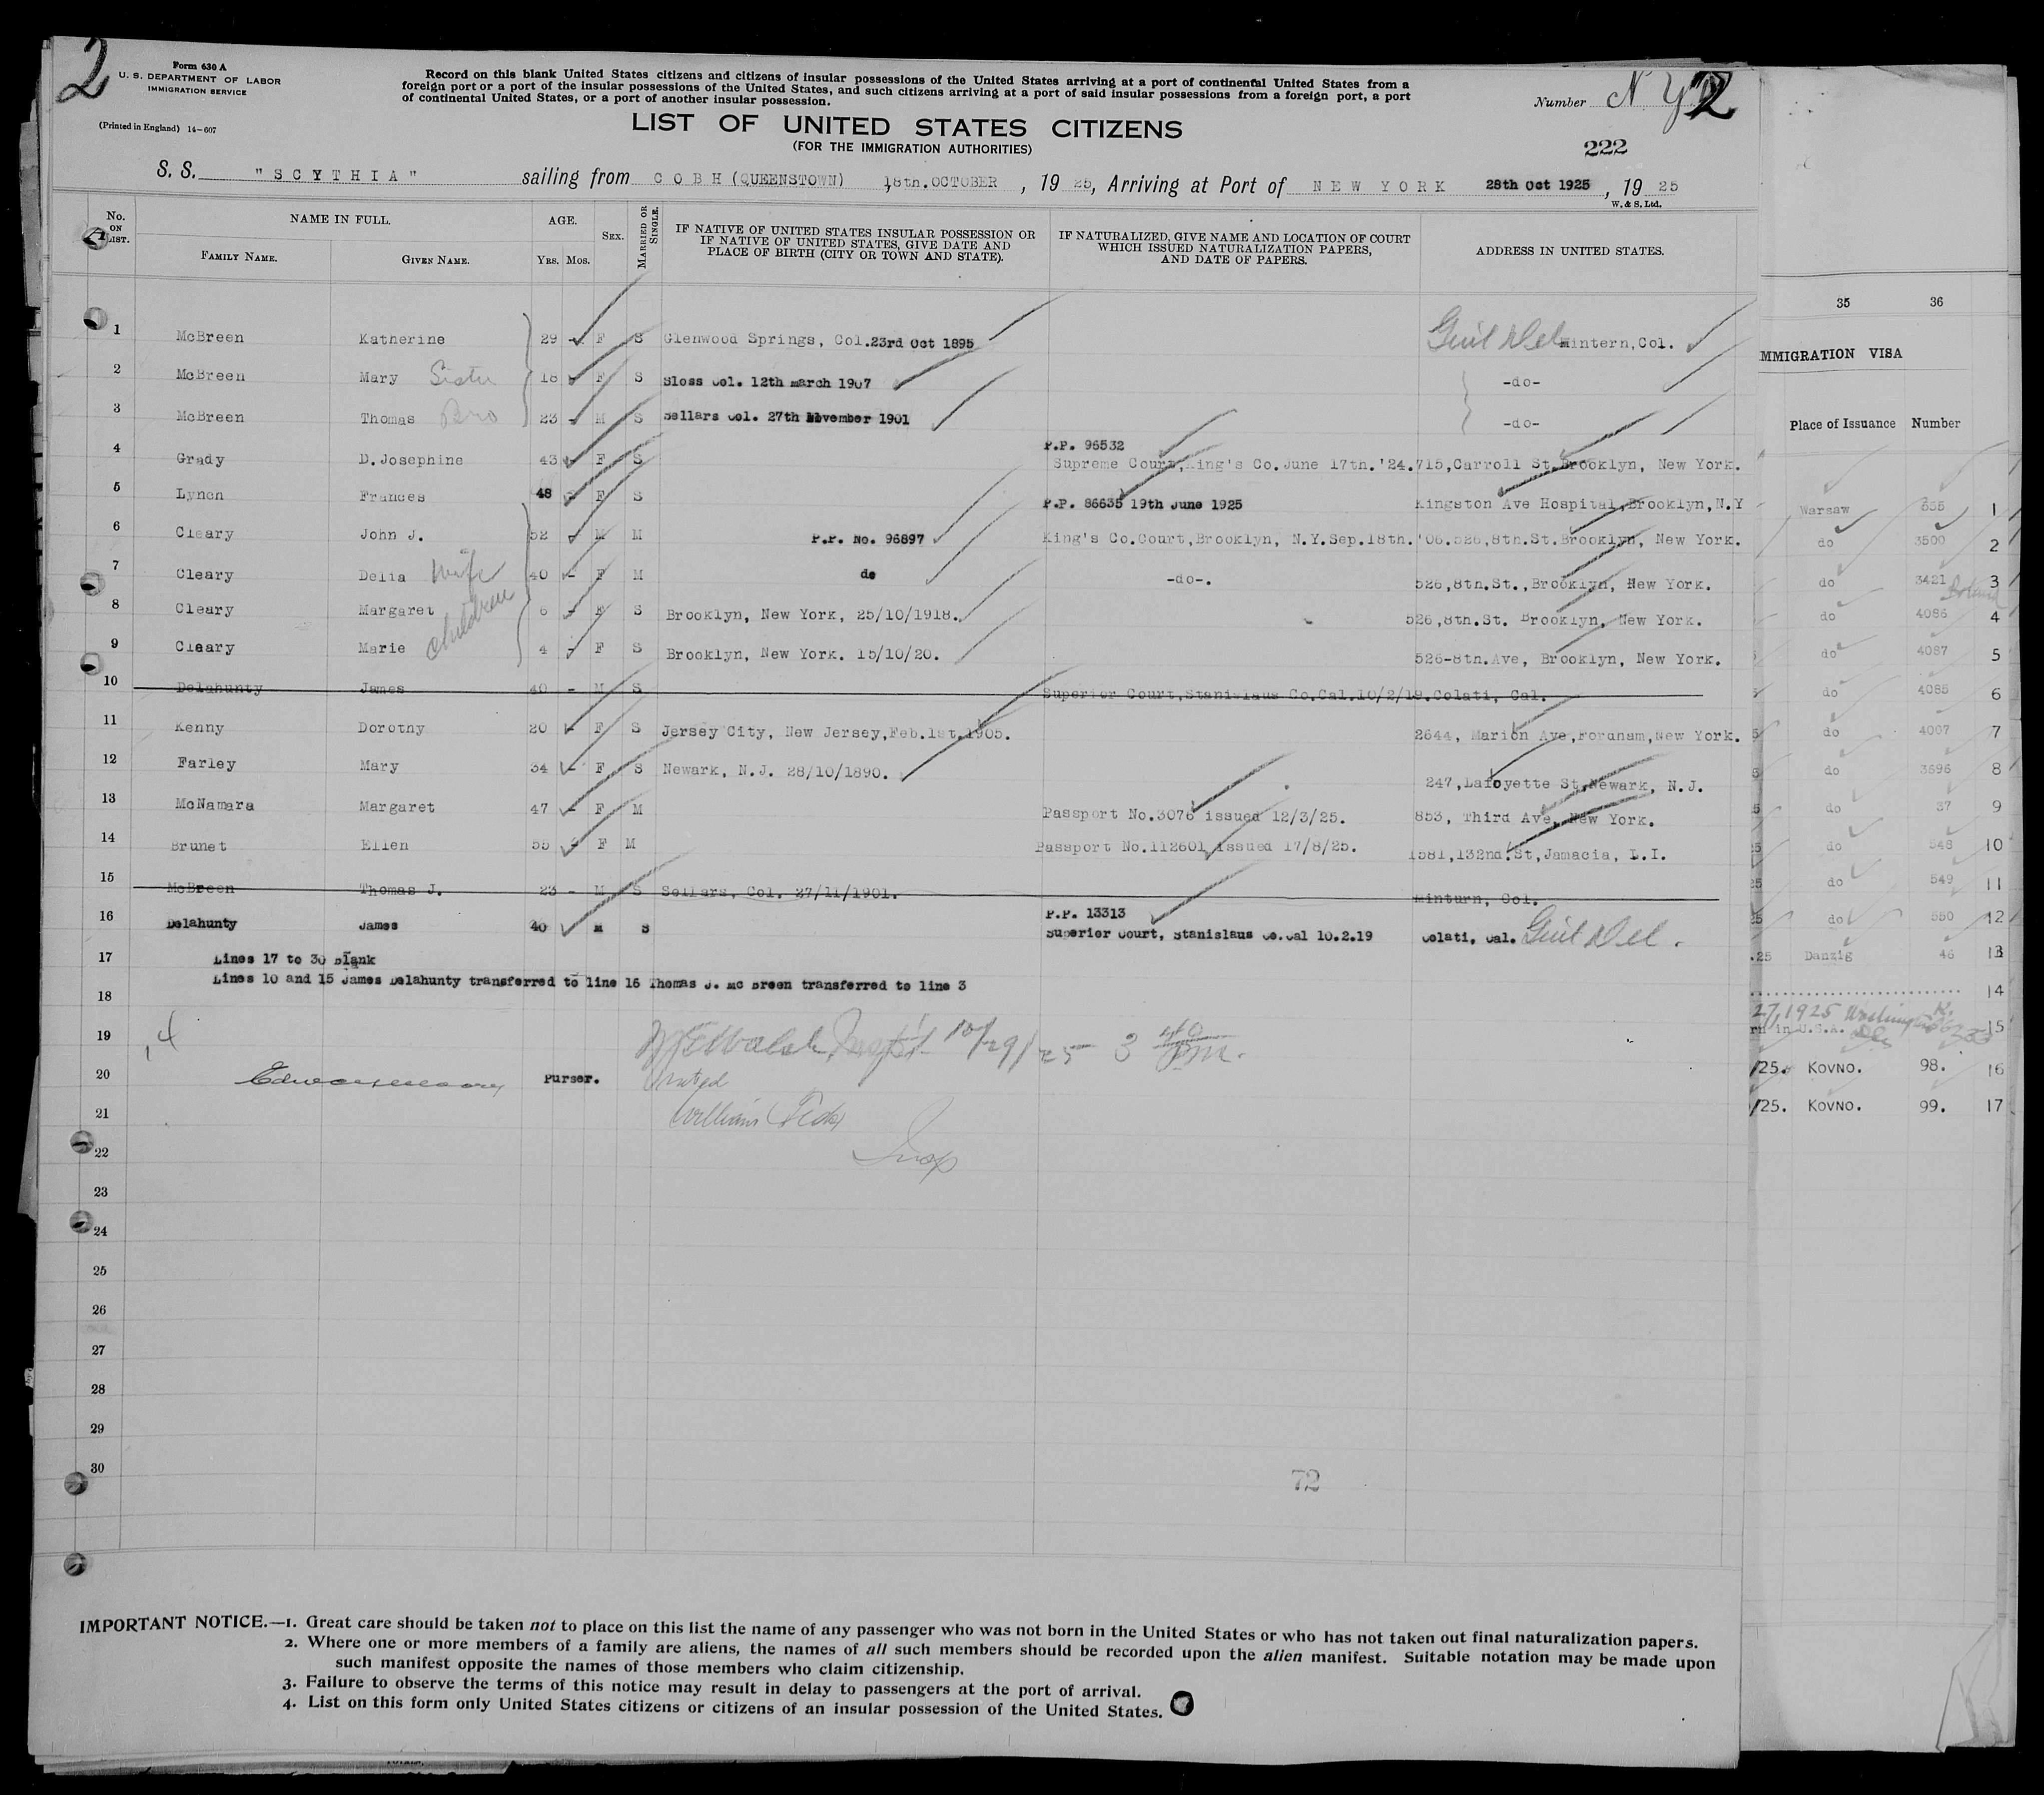 2
Form 630 A
U. S. DEPARTMENT OF LABOR
IMMIGRATION SERVICE
(Printed in England) 14-607
Record on this blank United States citizens and citizens of insular possessions of the United States arriving at a port of continental United States from a
foreign port or a port of the insular possessions of the United States, and such citizens arriving at a port of said insular possessions from a foreign port, a port
of continental United States, or a port of another insular possession.
Number N.Y. 2
LIST OF UNITED STATES CITIZENS
(FOR THE IMMIGRATION AUTHORITIES)
222
S. S. "SCYTHIA" sailing from COBH (QUEENSTOWN) 18th. OCTOBER, 1925, Arriving at Port of NEW YORK 28th Oct 1925, 1925
W. & S. Ltd.
No. ON LIST. NAME IN FULL. AGE. SEX. MARRIED OR SINGLE. IF NATIVE OF UNITED STATES INSULAR POSSESSION OR IF NATIVE OF UNITED STATES, GIVE DATE AND PLACE OF BIRTH (CITY OR TOWN AND STATE). IF NATURALIZED, GIVE NAME AND LOCATION OF COURT WHICH ISSUED NATURALIZATION PAPERS, AND DATE OF PAPERS. ADDRESS IN UNITED STATES.
FAMILY NAME. GIVEN NAME. YRS. MOS.
1 McBreen Katherine 29 - F S Glenwood Springs, Col. 23rd Oct 1895 Mintern, Col.
2 McBreen Mary Sister 18 - F S Sloss Col. 12th march 1907 -do-
3 McBreen Thomas Bro 23 - M S Sellars Col. 27th November 1901 -do-
P.P. 96532
4 Grady D. Josephine 43 - F S Supreme Court, King's Co. June 17th. '24. 715, Carroll St. Brooklyn, New York.
5 Lynch Frances 48 - F S P.P. 86635 19th June 1925 Kingston Ave Hospital, Brooklyn, N.Y
6 Cleary John J. 52 - M M P.P. No. 96897 King's Co. Court, Brooklyn, N.Y. Sep. 18th. '06. 526, 8th. St. Brooklyn, New York.
7 Cleary Delia Wife 40 - F M do -do-. 526, 8th. St., Brooklyn, New York.
8 Cleary Margaret 6 - F S Brooklyn, New York, 25/10/1918. 526, 8th. St. Brooklyn, New York.
children
9 Cleary Marie 4 - F S Brooklyn, New York. 15/10/20. 526-8th. Ave, Brooklyn, New York.
10 Delahunty James 40 - M S Superior Court, Stanislaus Co. Cal. 10/2/19. Colati, Cal.
11 Kenny Dorothy 20 - F S Jersey City, New Jersey, Feb. 1st. 1905. 2644, Marion Ave, Fordham, New York.
12 Farley Mary 34 - F S Newark, N.J. 28/10/1890. 247, Lafoyette St, Newark, N.J.
13 McNamara Margaret 47 - F M Passport No. 3076 issued 12/3/25. 853, Third Ave, New York.
14 Brunet Ellen 55 - F M Passport No. 112601 issued 17/8/25. 1581, 132nd. St, Jamacia, L.I.
15 McBreen Thomas J. 23 - M S Sellars, Col. 27/11/1901. Minturn, Col.
P.P. 13313
16 Delahunty James 40 M S Superior Court, Stanislaus Co. Cal 10.2.19 Colati, Cal.
17 Lines 17 to 30 Blank
Lines 10 and 15 James Delahunty transferred to line 16 Thomas J. Mc Breen transferred to line 3
18
19 10/29/25 3 40 P.M.
20 Purser.
21 William
22 Insp
23
24
25
26
27
28
29
30
72
IMPORTANT NOTICE.—1. Great care should be taken not to place on this list the name of any passenger who was not born in the United States or who has not taken out final naturalization papers.
2. Where one or more members of a family are aliens, the names of all such members should be recorded upon the alien manifest. Suitable notation may be made upon
such manifest opposite the names of those members who claim citizenship.
3. Failure to observe the terms of this notice may result in delay to passengers at the port of arrival.
4. List on this form only United States citizens or citizens of an insular possession of the United States.
35 36
IMMIGRATION VISA
Place of Issuance Number
Warsaw 535 1
do 3500 2
do 3421 3
do 4086 4
do 4087 5
do 4085 6
do 4007 7
do 3696 8
do 37 9
do 548 10
do 549 11
do 550 12
.25 Danzig 46 13
14
27, 1925
in U.S.A. 15
/25. KOVNO. 98. 16
/25. KOVNO. 99. 17